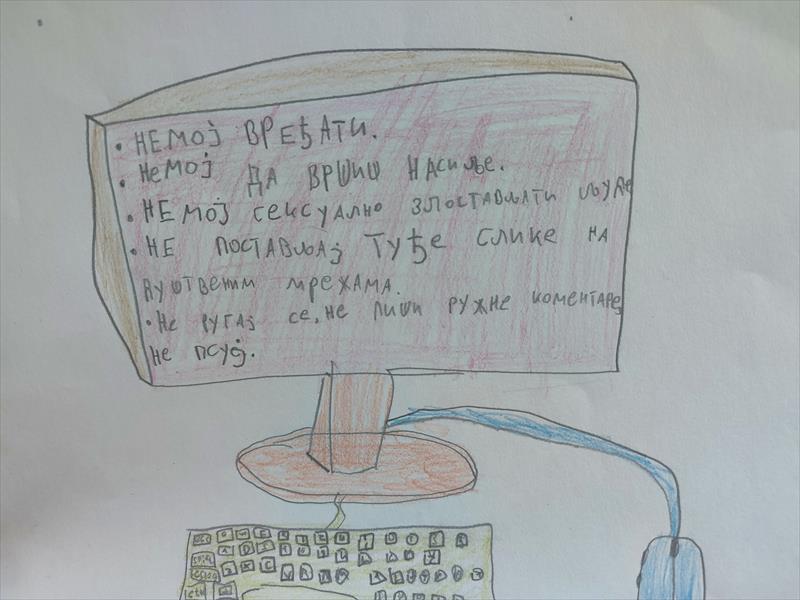 • НЕМОЈ ВРЕЂАТИ.
• НЕМОЈ ДА ВРШИШ НАСИЉЕ.
• НЕМОЈ СЕКСУАЛНО ЗЛОСТАВЉАТИ ЉУДЕ
• НЕ ПОСТАВЉАЈ ТУЂЕ СЛИКЕ НА
ДУШТВЕНИМ МРЕХАМА.
• НЕ РУГАЈ СЕ, НЕ ПИШИ РУЖНЕ КОМЕНТАРЕ,
НЕ ПСУЈ.